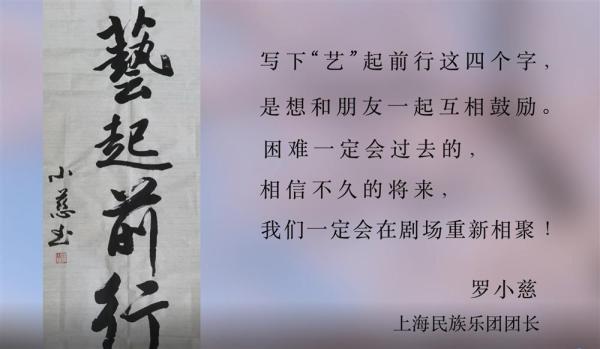 藝起前行
小慈书
写下“艺”起前行这四个字，
是想和朋友一起互相鼓励。
困难一定会过去的，
相信不久的将来，
我们一定会在剧场重新相聚！
罗小慈
上海民族乐团团长